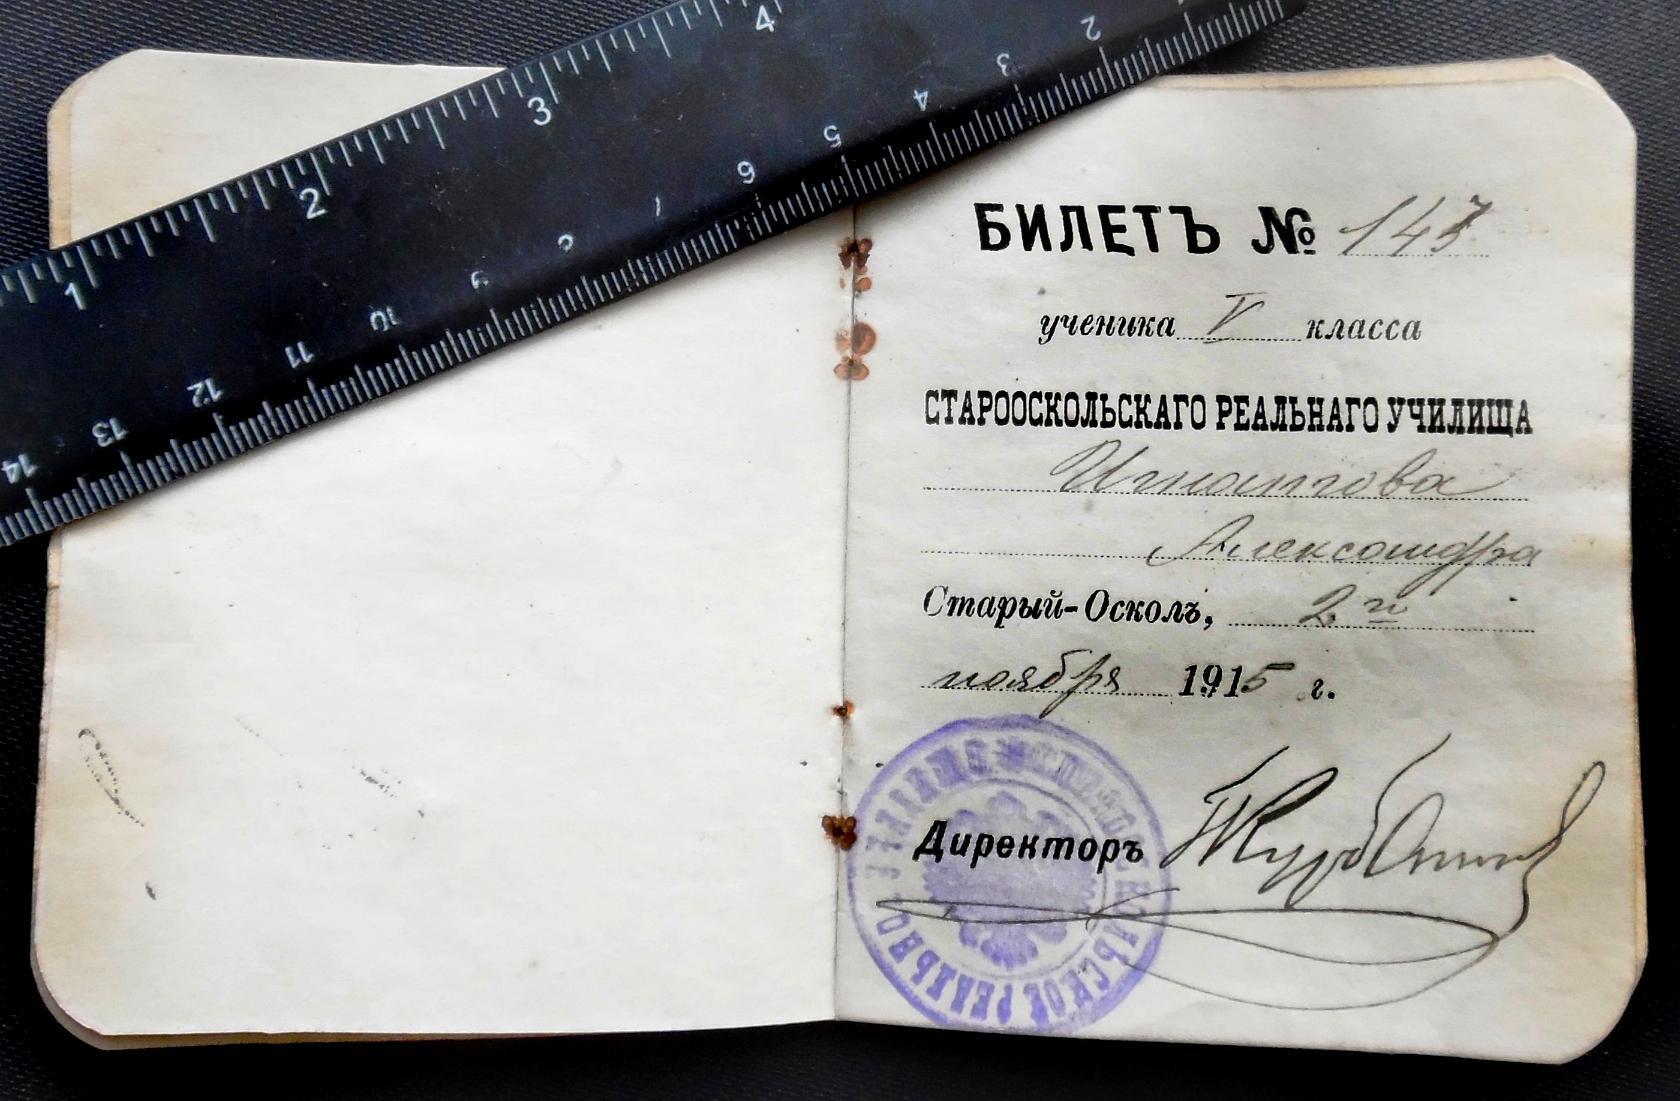 1 2 3 4
2 3 4 5 6 7 8 9 10 11 12 13 14
БИЛЕТЪ № 147
ученика V класса
СТАРООСКОЛЬСКАГО РЕАЛЬНАГО УЧИЛИЩА
Игнатова
Александра
Старый-Осколъ, 2 го
ноября 1915 г.
Директоръ
СТАРООСКОЛЬСКОЕ РЕАЛЬНОЕ УЧИЛИЩЕ